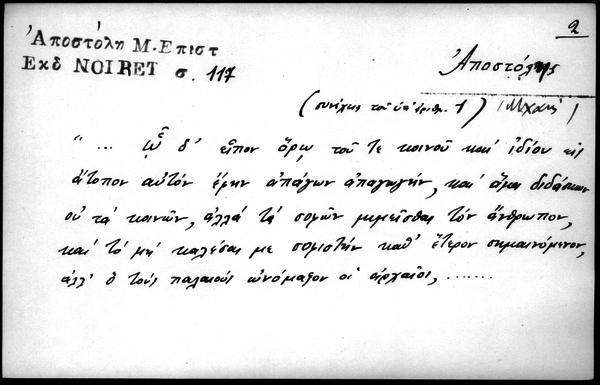 2
Ἀποστόλη Μ. Επιστ
Εκδ NOIRET σ. 117
Ἀποστόλης
(συνέχεια τοῦ ὑπ' ἀριθμ. 1) (Μιχαήλ)
"... ᾧ δ' εἶπον ὅρῳ τοῦ τε κοινοῦ καί ἰδίου εἰς
ἄτοπον αὐτόν ἔφην ἀπάγων ἀπαγωγήν, καί ἅμα διδάσκων
οὐ τά κοινῶν, ἀλλά τά σοφῶν μιμεῖσθαι τόν ἄνθρωπον,
καί τό μή καλέσαι με σοφιστήν καθ' ἕτερον σημαινόμενον,
ἀλλ' ὅ τούς παλαιούς ὠνόμαζον οἱ ἀρχαῖοι, .......